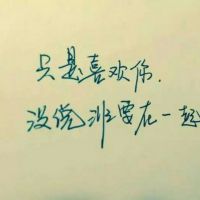 只是喜欢你.
没说非要在一起